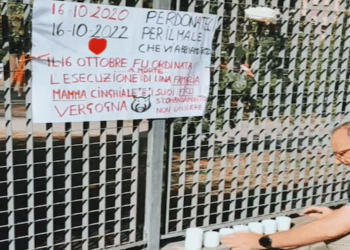 16-10-2020
16-10-2022
PERDONATECI
PER IL MALE
CHE VI ABBIAMO FATTO
IL 16 OTTOBRE FU ORDINATA
L'ESECUZIONE DI UNA FAMIGLIA
A MORTE
MAMMA CINGHIALE E I SUOI FIGLI
VERGOGNA
5° COMANDAMENTO
NON UCCIDERE